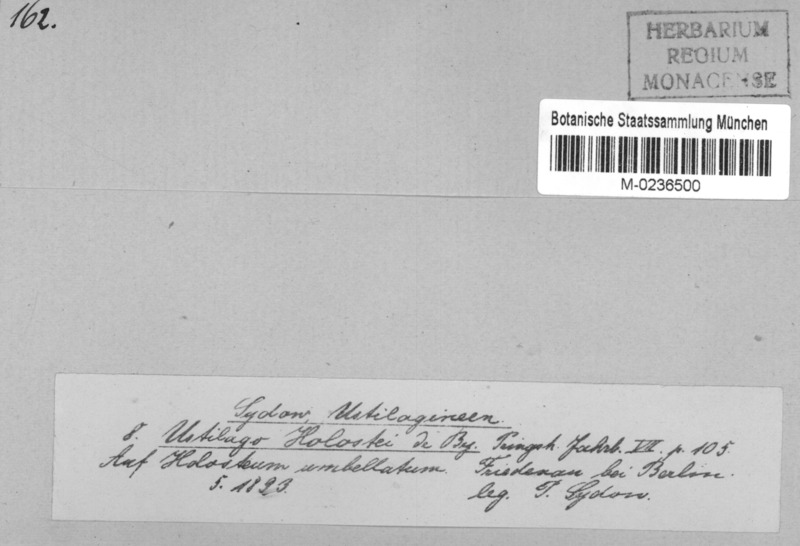 162.
HERBARIUM
REGIUM
MONACENSE
Botanische Staatssammlung München
M-0236500
Sydow, Ustilagineen.
8. Ustilago Holostei de By. Pringsh. Jahrb. VII. p. 105.
Auf Holosteum umbellatum. Friedenau bei Berlin.
5. 1893. leg. P. Sydow.